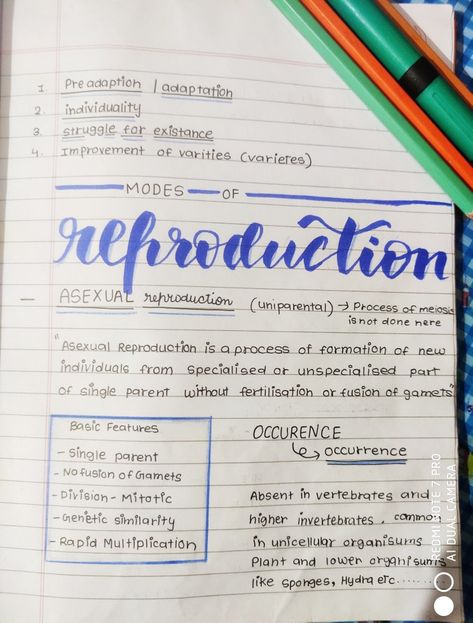 1. Preadaption / adaptation
2. individuality
3. struggle for existance
4. Improvement of varities (varieres)
MODES OF
reproduction
ASEXUAL reproduction (uniparental) → Process of meiosis
is not done here
"Asexual Reproduction is a process of formation of new
individuals from specialised or unspecialised part
of single parent without fertilisation or fusion of gamets"
Basic Features
- Single parent
- No fusion of Gamets
- Division - Mitotic
- Genetic similarity
- Rapid Multiplication
OCCURENCE
occurrence
Absent in vertebrates and
higher invertebrates. common
in unicellular organisums
Plant and lower organisums
like sponges, Hydra etc..........
REDMI NOTE 7 PRO
AI DUAL CAMERA